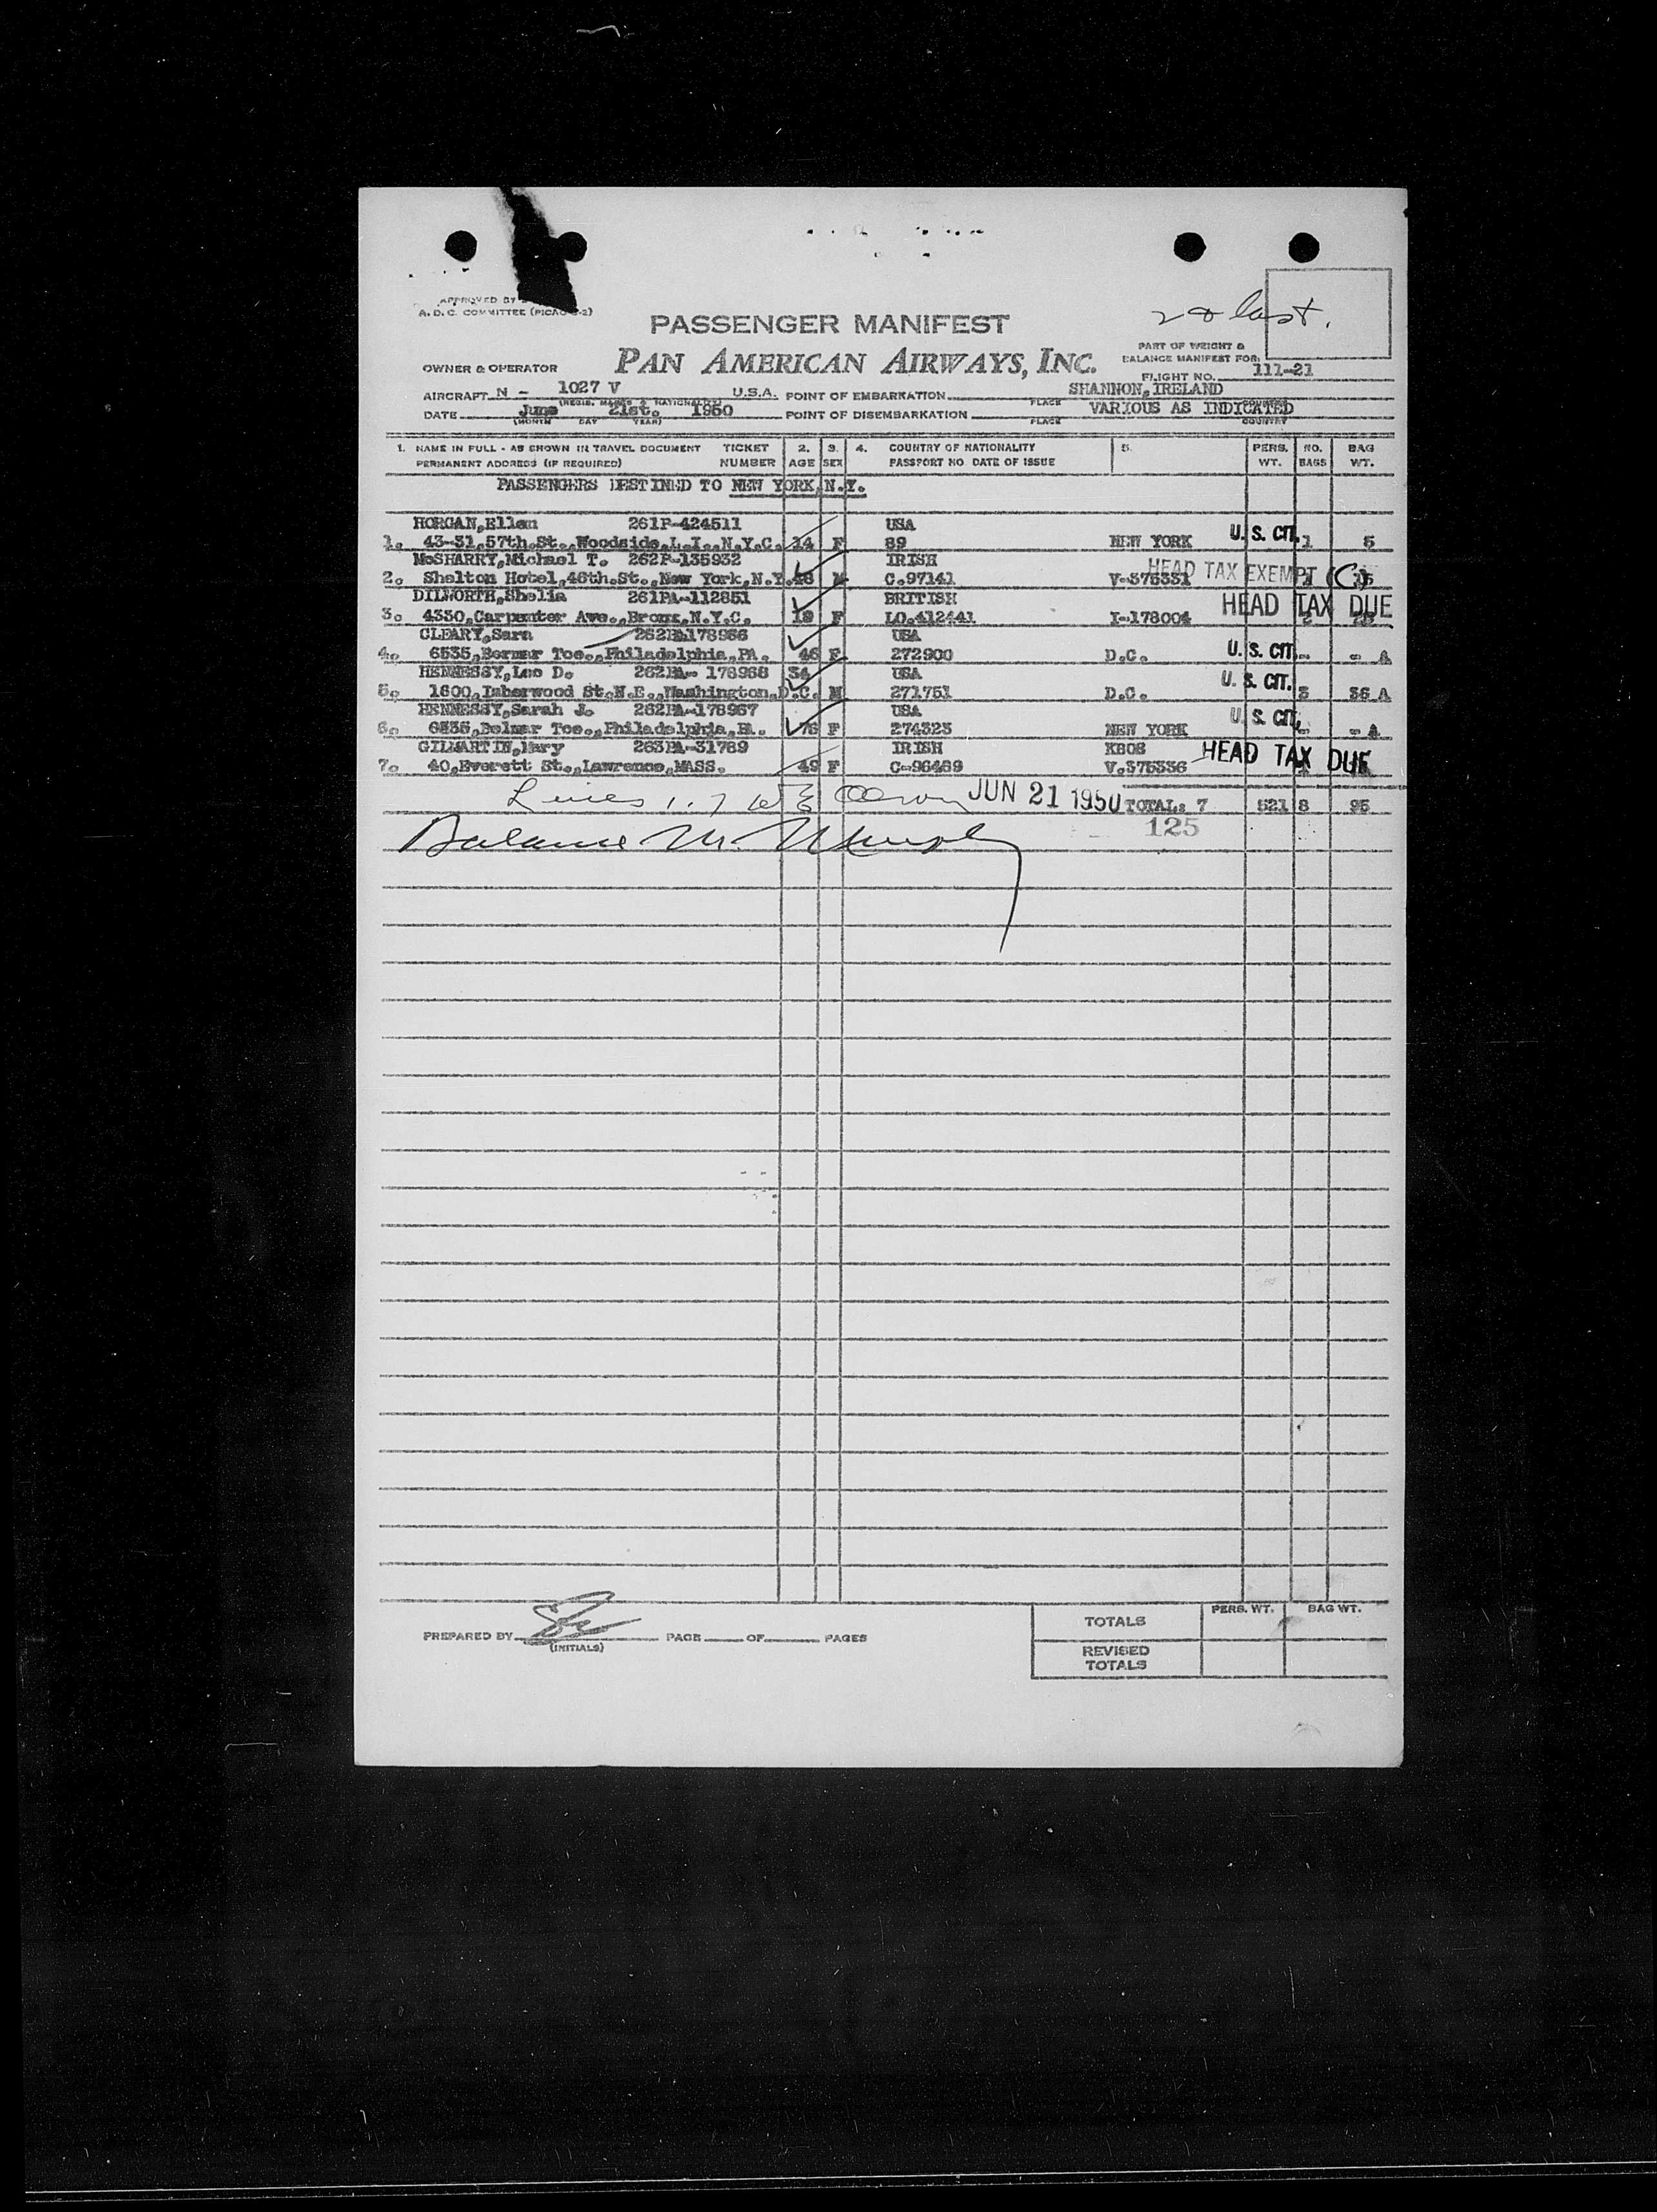 APPROVED BY
A. D. C. COMMITTEE (PICAO -2)
2d last.
PASSENGER MANIFEST
PART OF WEIGHT &
BALANCE MANIFEST FOR:
OWNER & OPERATOR PAN AMERICAN AIRWAYS, INC.
FLIGHT NO. 111-21
AIRCRAFT N - 1027 V U.S.A. POINT OF EMBARKATION SHANNON, IRELAND
(REGIS. MARKS & NATIONALITY) PLACE COUNTRY
DATE June 21st. 1950 POINT OF DISEMBARKATION VARIOUS AS INDICATED
(MONTH DAY YEAR) PLACE COUNTRY
1. NAME IN FULL - AS SHOWN IN TRAVEL DOCUMENT TICKET 2. 3. 4. COUNTRY OF NATIONALITY 5. PERS. NO. BAG
PERMANENT ADDRESS (IF REQUIRED) NUMBER AGE SEX PASSPORT NO. DATE OF ISSUE WT. BAGS WT.
PASSENGERS DESTINED TO NEW YORK, N.Y.
HORGAN, Ellen 261P-424511 USA U. S. CIT.
1. 43-31, 57th. St., Woodside, L.I., N.Y.C. F 89 NEW YORK 1 5
McSHARRY, Michael T. 262P-135932 IRISH HEAD TAX EXEMPT (C)
2. Shelton Hotel, 48th. St., New York, N.Y. M C.97141 V-375331
DILWORTH, Shelia 261PA-112851 BRITISH HEAD TAX DUE
3. 4330, Carpenter Ave., Bronx, N.Y.C. 19 F LO.412441 I-178004 2
CLEARY, Sara 262PA178966 USA U. S. CIT.
4. 6535, Bormar Toe., Philadelphia, PA. 46 F 272900 D.C. - - A
HENNESSY, Leo D. 262PA- 178968 34 USA U. S. CIT.
5. 1600, Isherwood St. N.E., Washington, D.C. M 271751 D.C. 3 36 A
HENNESSY, Sarah J. 262PA-178967 USA U. S. CIT.
6. 6535, Belmar Toe., Philadelphia, PA. 76 F 274325 NEW YORK - - A
GILMARTIN, Mary 263PA-31789 IRISH KBOS HEAD TAX DUE
7. 40, Everett St., Lawrence, MASS. 49 F C-96489 V.375336
Lines 1. 7 JUN 21 1950 TOTAL: 7 521 8 95
Balance M. Murphy 125
PREPARED BY PAGE OF PAGES
(INITIALS)
PERS. WT. BAG WT.
TOTALS
REVISED
TOTALS